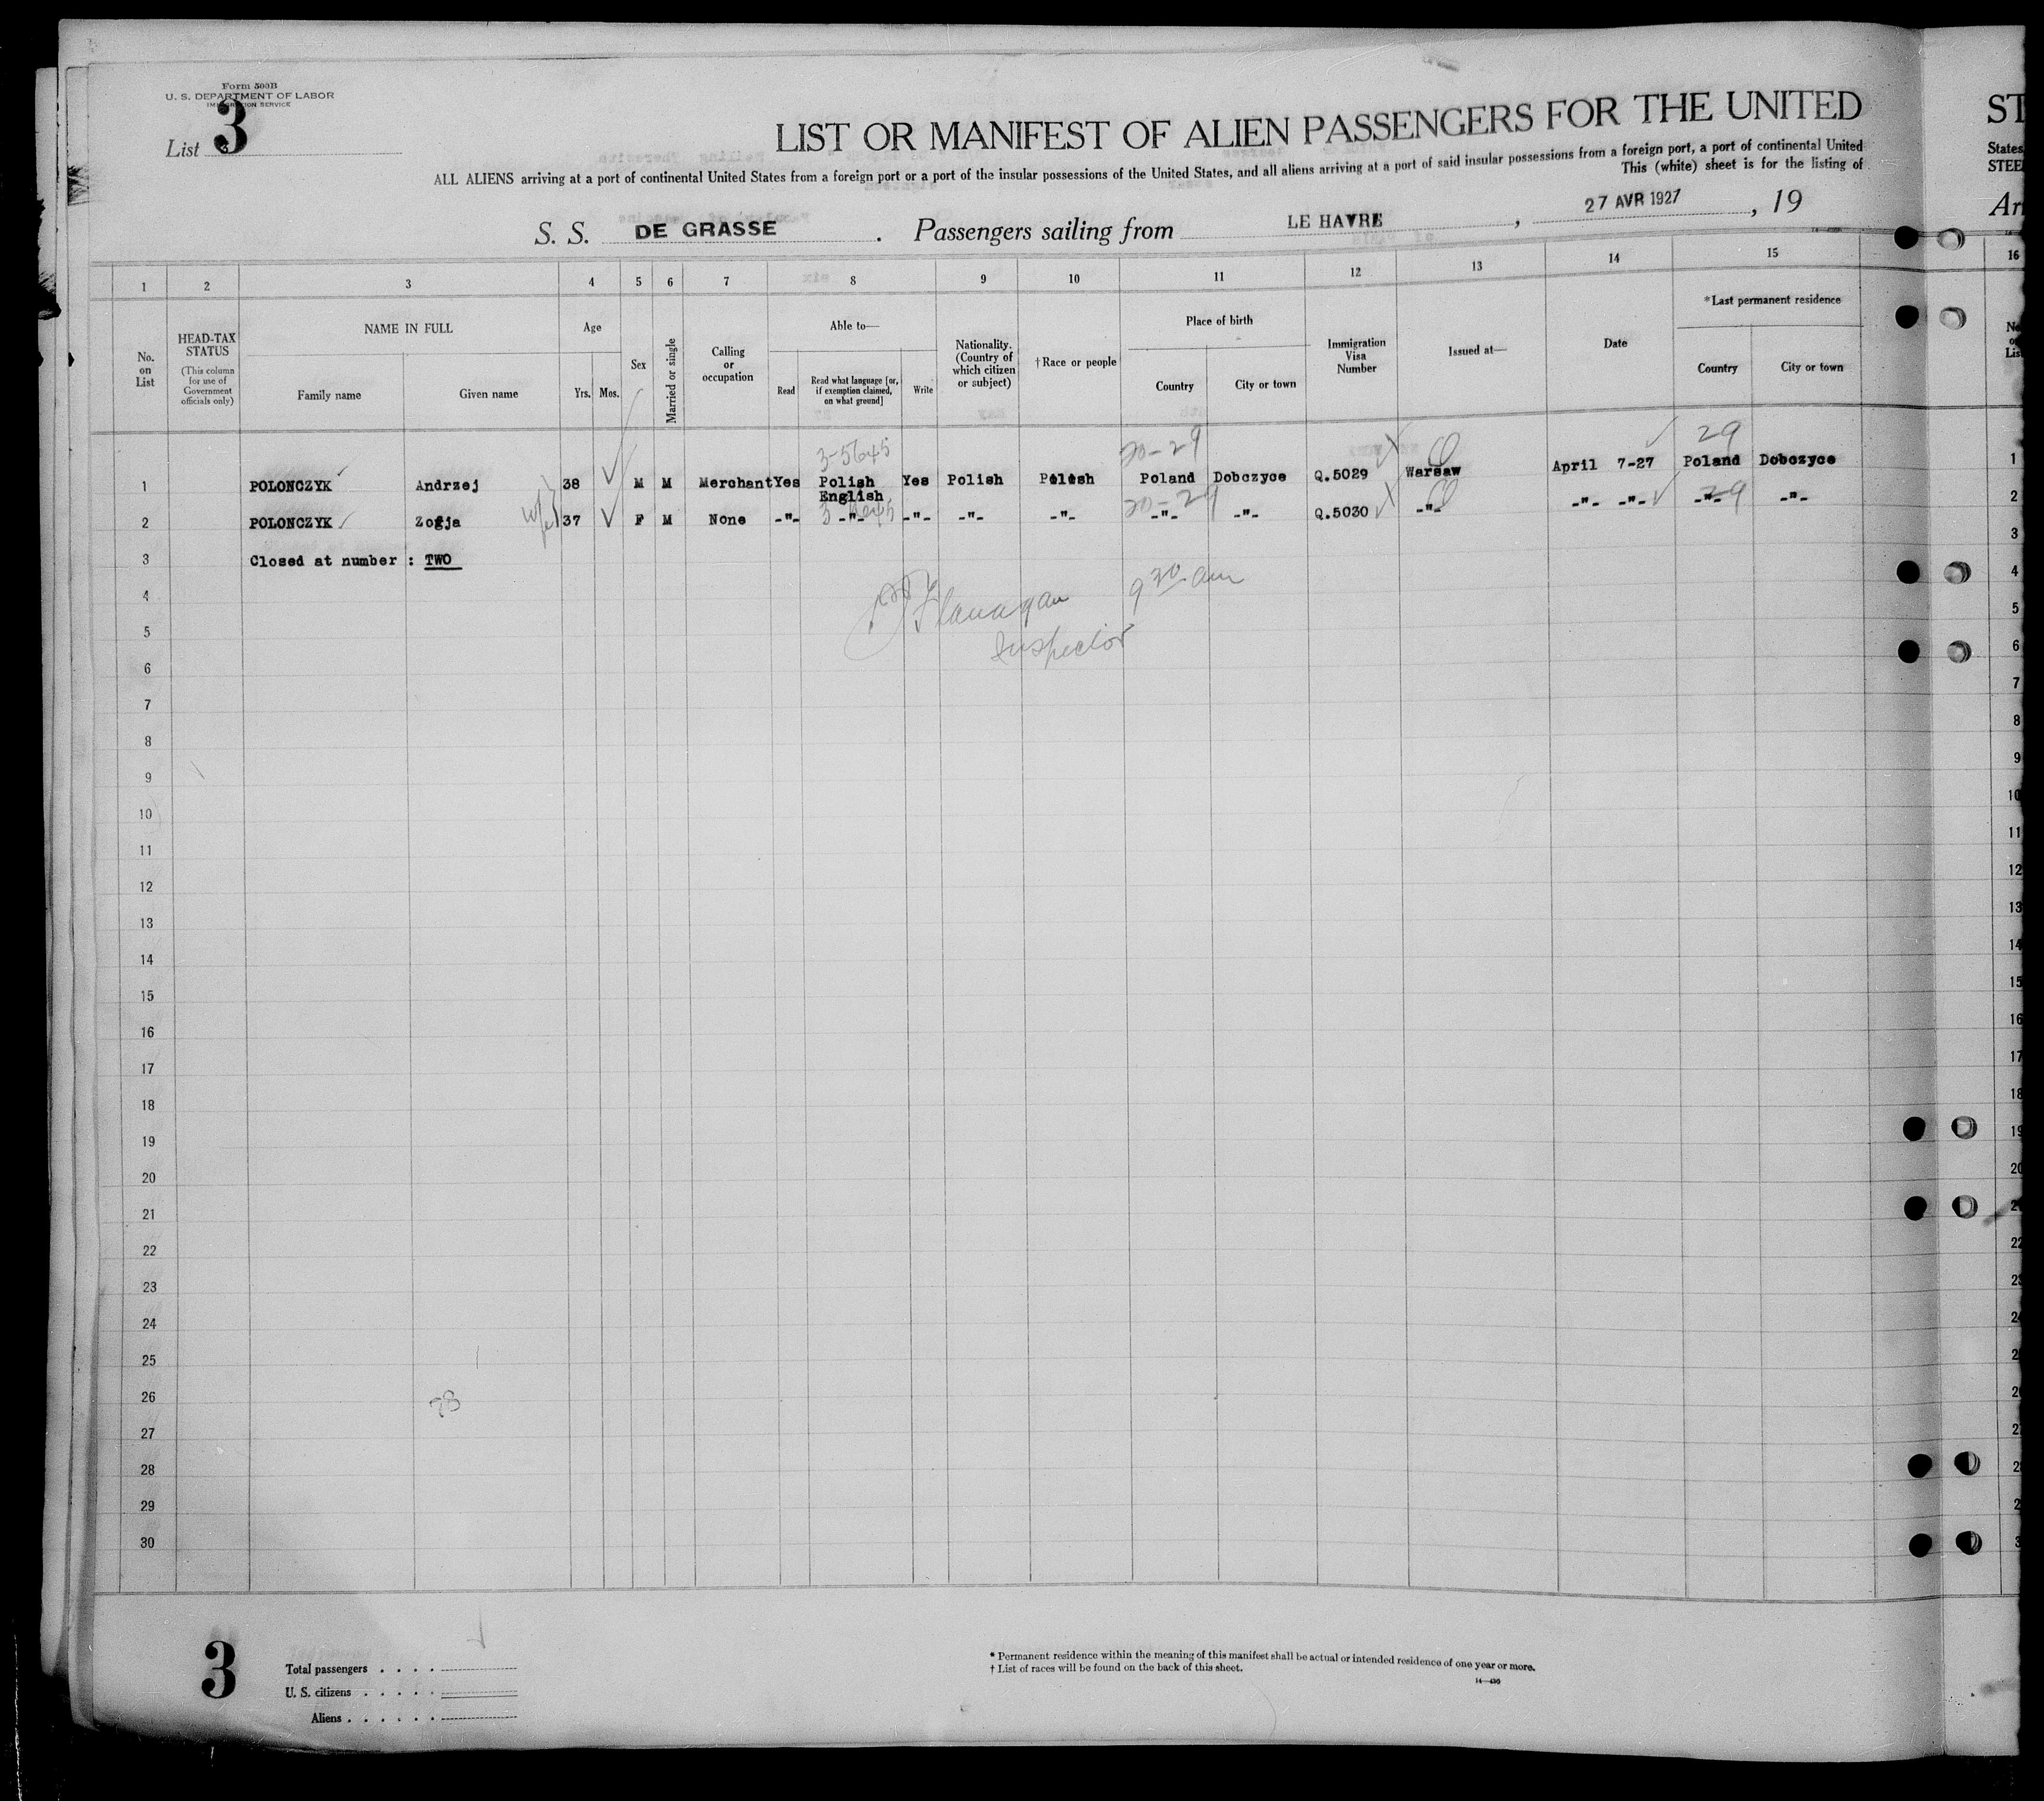 Form 500B
U. S. DEPARTMENT OF LABOR
IMMIGRATION SERVICE
List 3
LIST OR MANIFEST OF ALIEN PASSENGERS FOR THE UNITED ST
ALL ALIENS arriving at a port of continental United States from a foreign port or a port of the insular possessions of the United States, and all aliens arriving at a port of said insular possessions from a foreign port, a port of continental United States
This (white) sheet is for the listing of STEE
S. S. DE GRASSE. Passengers sailing from LE HAVRE, 27 AVR 1927, 19 Arr
1 2 3 4 5 6 7 8 9 10 11 12 13 14 15 16
No. on List
HEAD-TAX STATUS (This column for use of Government officials only)
NAME IN FULL
Family name
Given name
Age
Yrs. Mos.
Sex
Married or single
Calling or occupation
Able to—
Read
Read what language [or, if exemption claimed, on what ground]
Write
Nationality. (Country of which citizen or subject)
†Race or people
Place of birth
Country
City or town
Immigration Visa Number
Issued at—
Date
*Last permanent residence
Country
City or town
3-5645 20-29 29
1 POLONCZYK Andrzej 38 M M Merchant Yes Polish English Yes Polish Polish Poland Dobczyce Q.5029 Warsaw April 7-27 Poland Dobczyce 1
20-29 29
2 POLONCZYK Zofja wife 37 F M None -"- -"- -"- -"- -"- -"- -"- Q.5030 -"- -"- -"- -"- -"- 2
3 Closed at number : TWO 3
4 Flanagan 9 30 am 4
5 Inspector 5
6 6
7 7
8 8
9 9
10 10
11 11
12 12
13 13
14 14
15 15
16 16
17 17
18 18
19 19
20 20
21
22 22
23
24
25
26
27
28
29
30
3
Total passengers
U. S. citizens
Aliens
* Permanent residence within the meaning of this manifest shall be actual or intended residence of one year or more.
† List of races will be found on the back of this sheet.